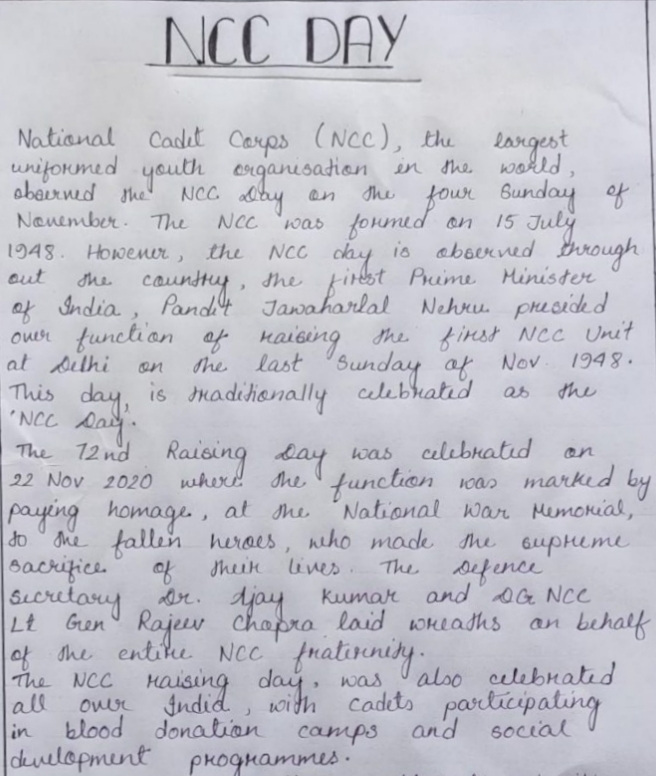 NCC DAY
National Cadet Corps (NCC), the largest
uniformed youth organisation in the world,
observed the NCC Day on the four Sunday of
November. The NCC was formed on 15 July
1948. However, the NCC day is observed through
out the country, the first Prime Minister
of India, Pandit Jawaharlal Nehru presided
over function of raising the first NCC Unit
at Delhi on the last Sunday of Nov. 1948.
This day, is traditionally celebrated as the
'NCC Day.
The 72nd Raising Day was celebrated on
22 Nov 2020 where the function was marked by
paying homage, at the National War Memorial,
to the fallen heroes, who made the supreme
sacrifice of their lives. The Defence
secretary Dr. Ajay Kumar and DG NCC
Lt Gen Rajeev Chopra laid wreaths on behalf
of the entire NCC fraternity.
The NCC raising day, was also celebrated
all over India, with cadets participating
in blood donation camps and social
development programmes.